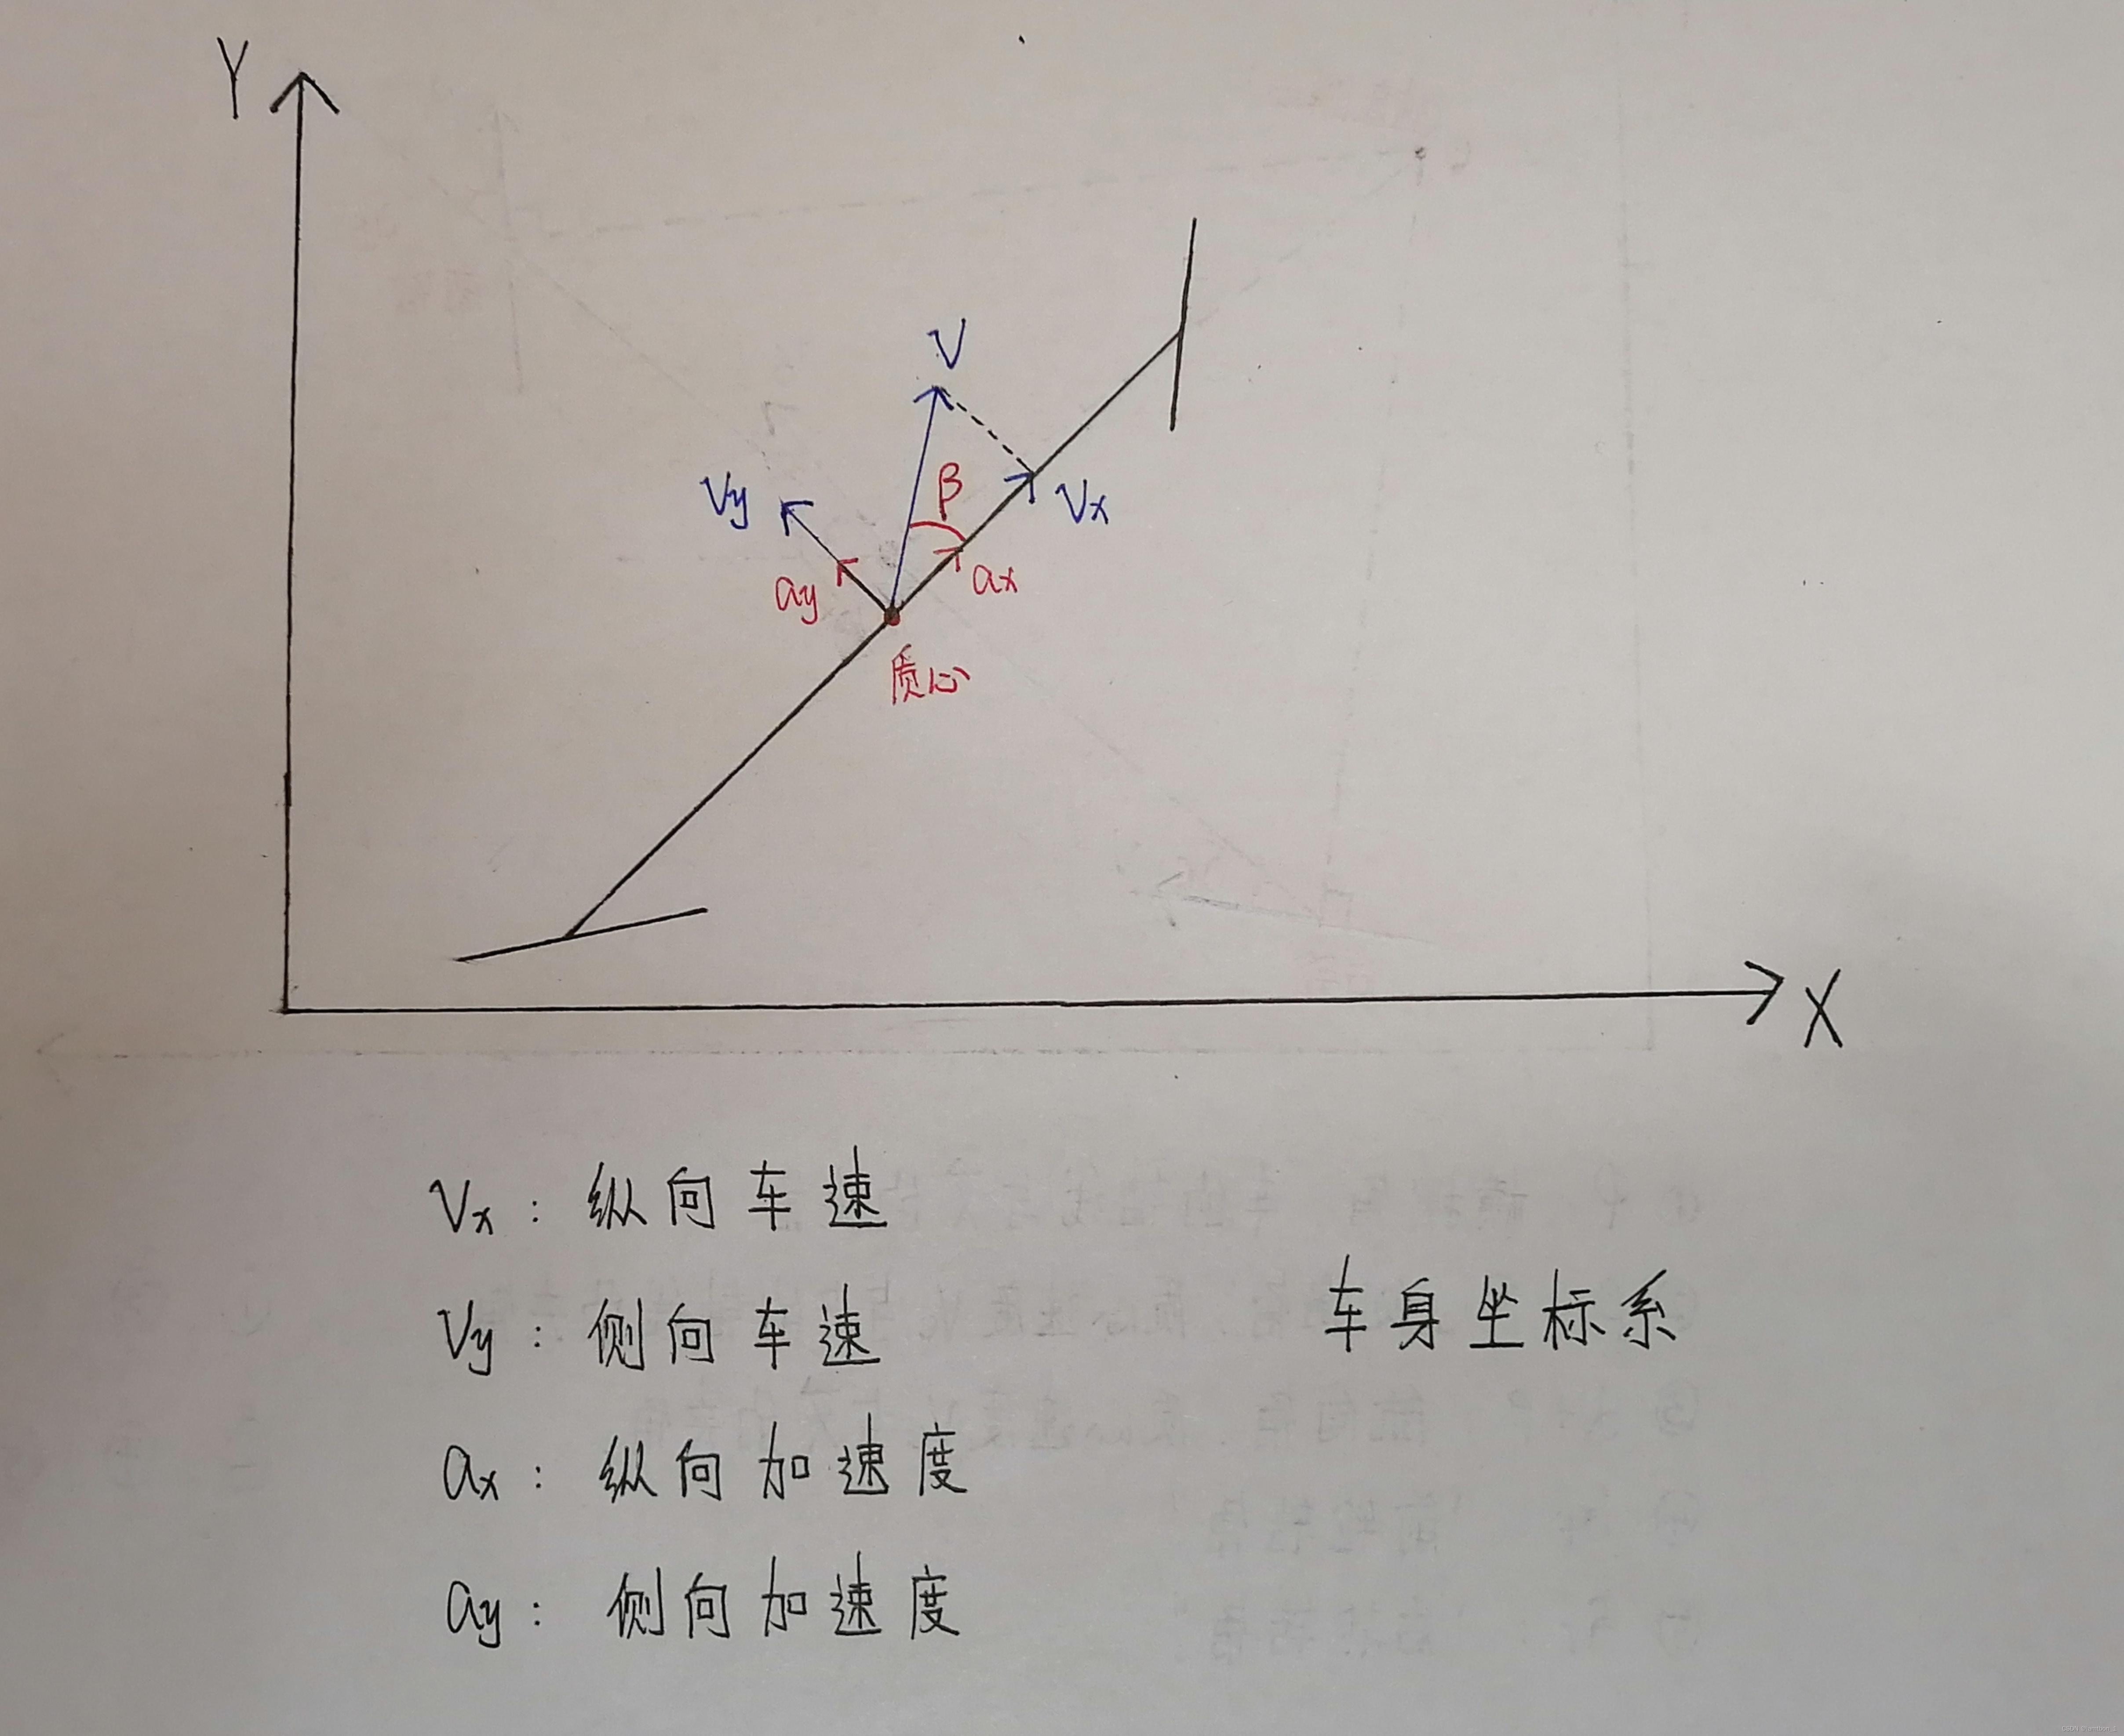 Y
V
β
Vy
Vx
ay
ax
质心
X
Vx : 纵向车速
Vy : 侧向车速
车身坐标系
ax : 纵向加速度
ay : 侧向加速度